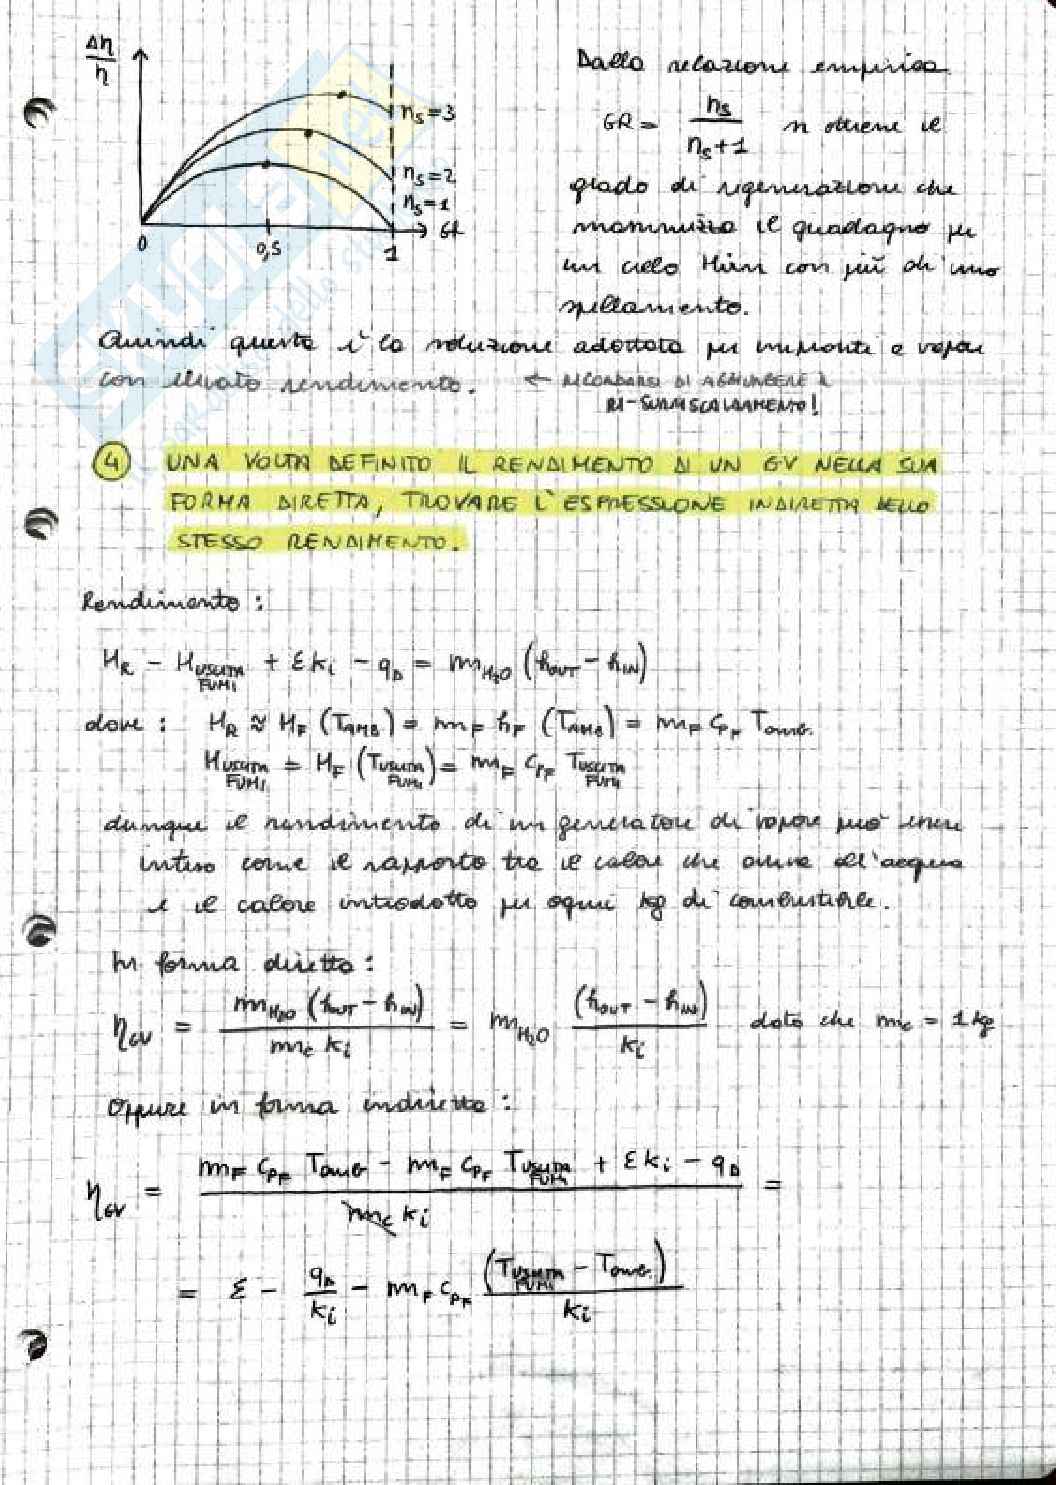 Δη/η
n_s=3
n_s=2
n_s=1
0
0,5
1
GR
Dalla relazione empirica
GR = n_s/(n_s+1) si ottiene il
grado di rigenerazione che
massimizza il guadagno per
un ciclo Hirn con più di uno
spillamento.
Quindi questa è la soluzione adottata per impianti a vapore
con elevato rendimento. ← RICORDARSI DI AGGIUNGERE IL
RI-SURRISCALDAMENTO!
④ UNA VOLTA DEFINITO IL RENDIMENTO DI UN GV NELLA SUA
FORMA DIRETTA, TROVARE L'ESPRESSIONE INDIRETTA DELLO
STESSO RENDIMENTO.
Rendimento :
H_R − H_USCITA FUMI + ε k_i − q_D = m_H2O (h_OUT − h_IN)
dove : H_R ≈ H_F (T_AMB) = m_F h_F (T_AMB) = m_F c_PF T_amb.
H_USCITA FUMI = H_F (T_USCITA FUMI) = m_F c_PF T_USCITA FUMI
dunque il rendimento di un generatore di vapore può essere
inteso come il rapporto tra il calore che arriva all'acqua
e il calore introdotto per ogni kg di combustibile.
In forma diretta :
η_GV = m_H2O (h_OUT − h_IN) / (m_c k_i) = m_H2O (h_OUT − h_IN) / k_i dato che m_c = 1 kg
oppure in forma indiretta :
η_GV = (m_F c_PF T_amb − m_F c_PF T_USCITA FUMI + ε k_i − q_D) / (m_c k_i) =
= ε − q_D/k_i − m_F c_PF (T_USCITA FUMI − T_amb.) / k_i